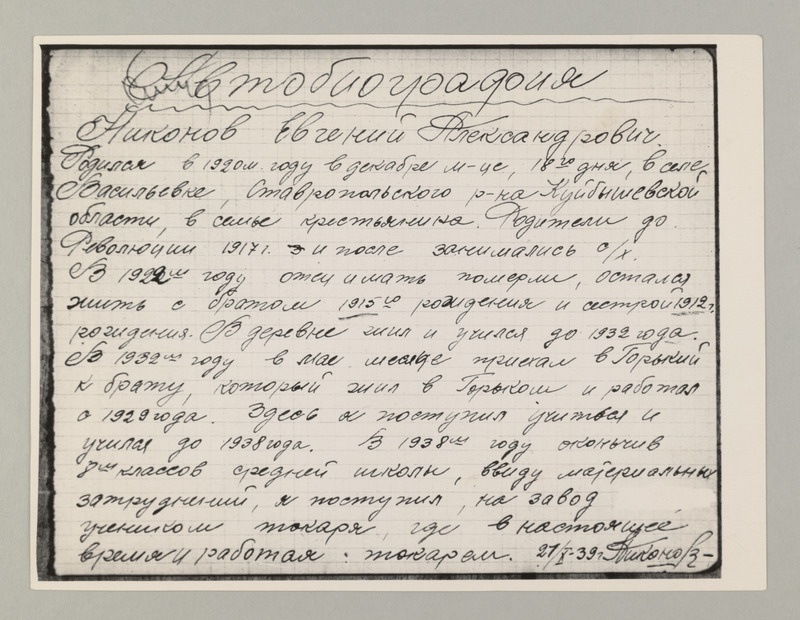 Автобиография
Никонов Евгений Александрович.
Родился в 1920м. году в декабре м-це, 18го дня, в селе
Васильевке, Ставропольского р-на Куйбышевской
области, в семье крестьянина. Родители до
Революции 1917г. и после занимались с/х.
В 1922ом году отец и мать померли, остался
жить с братом 1915го рождения и сестрой 1912г.
рождения. В деревне жил и учился до 1932 года.
В 1932ом году в мае месяце приехал в Горький
к брату, который жил в Горьком и работал
с 1929 года. Здесь я поступил учиться и
учился до 1938 года. В 1938ом году окончив
8мь классов средней школы, ввиду материальных
затруднений, я поступил, на завод
учеником токаря, где в настоящее
время и работаю: токарем. 21/X-39г. Никонов